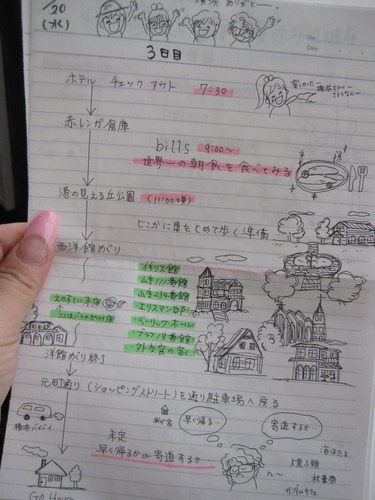 20
(水)
横浜 ありがと〜
3日目
ホテル チェック アウト 7:30
赤レンガ倉庫
bills 9:00〜
世界一の朝食を食べてみる
港の見える丘公園 (11:00頃)
どこかに車をとめて歩く準備
西洋館めぐり
・イギリス館
・山手111番館
・山手234番館
・エリスマン邸
・ベーリック・ホール
・ブラフ18番館
・外交官の家
えのきてい本店
洋館めぐり終り
元町通り (ショッピングストリート)を通り駐車場へ戻る
早く帰る…
寄道する…
横浜バイバイ
未定
早く帰るか 寄道するか…
ん〜
海ほたる
大黒ふ頭
秋葉原
Go Home